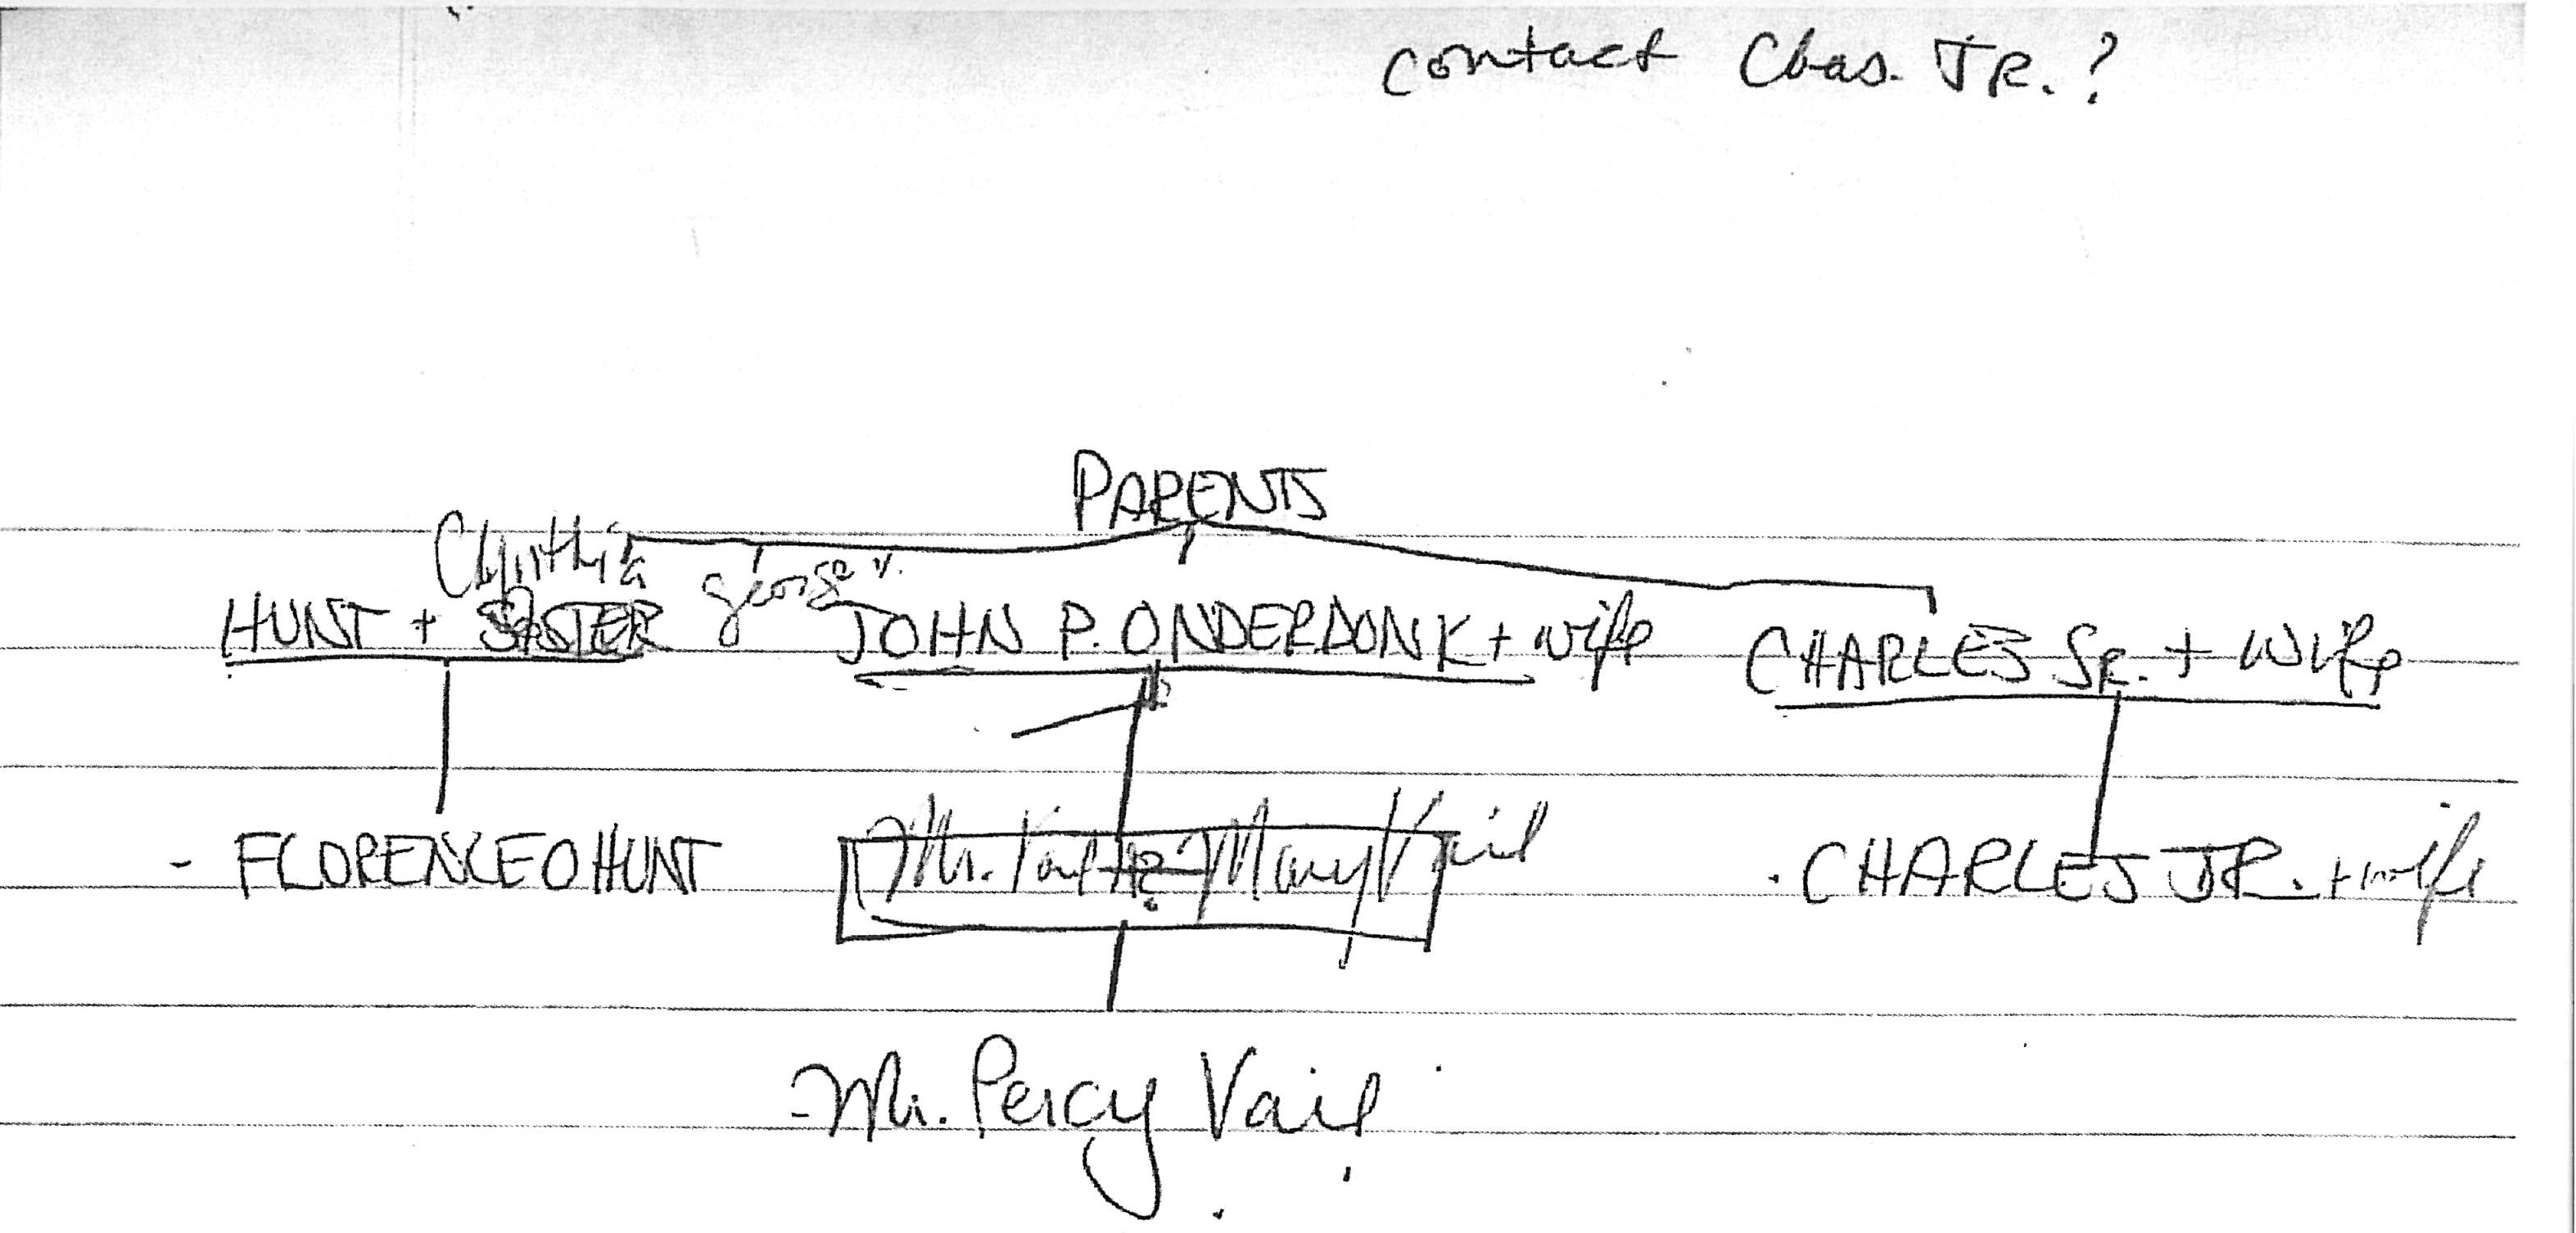 contact Chas. JR.?
PARENTS
Cynthia
george V.
HUNT + SISTER
JOHN P. ONDERDONK + wife
CHARLES SR. + wife
- FLORENCE O HUNT
Mr. Vail + Mary Vail
. CHARLES JR. + wife
- Mr. Percy Vail